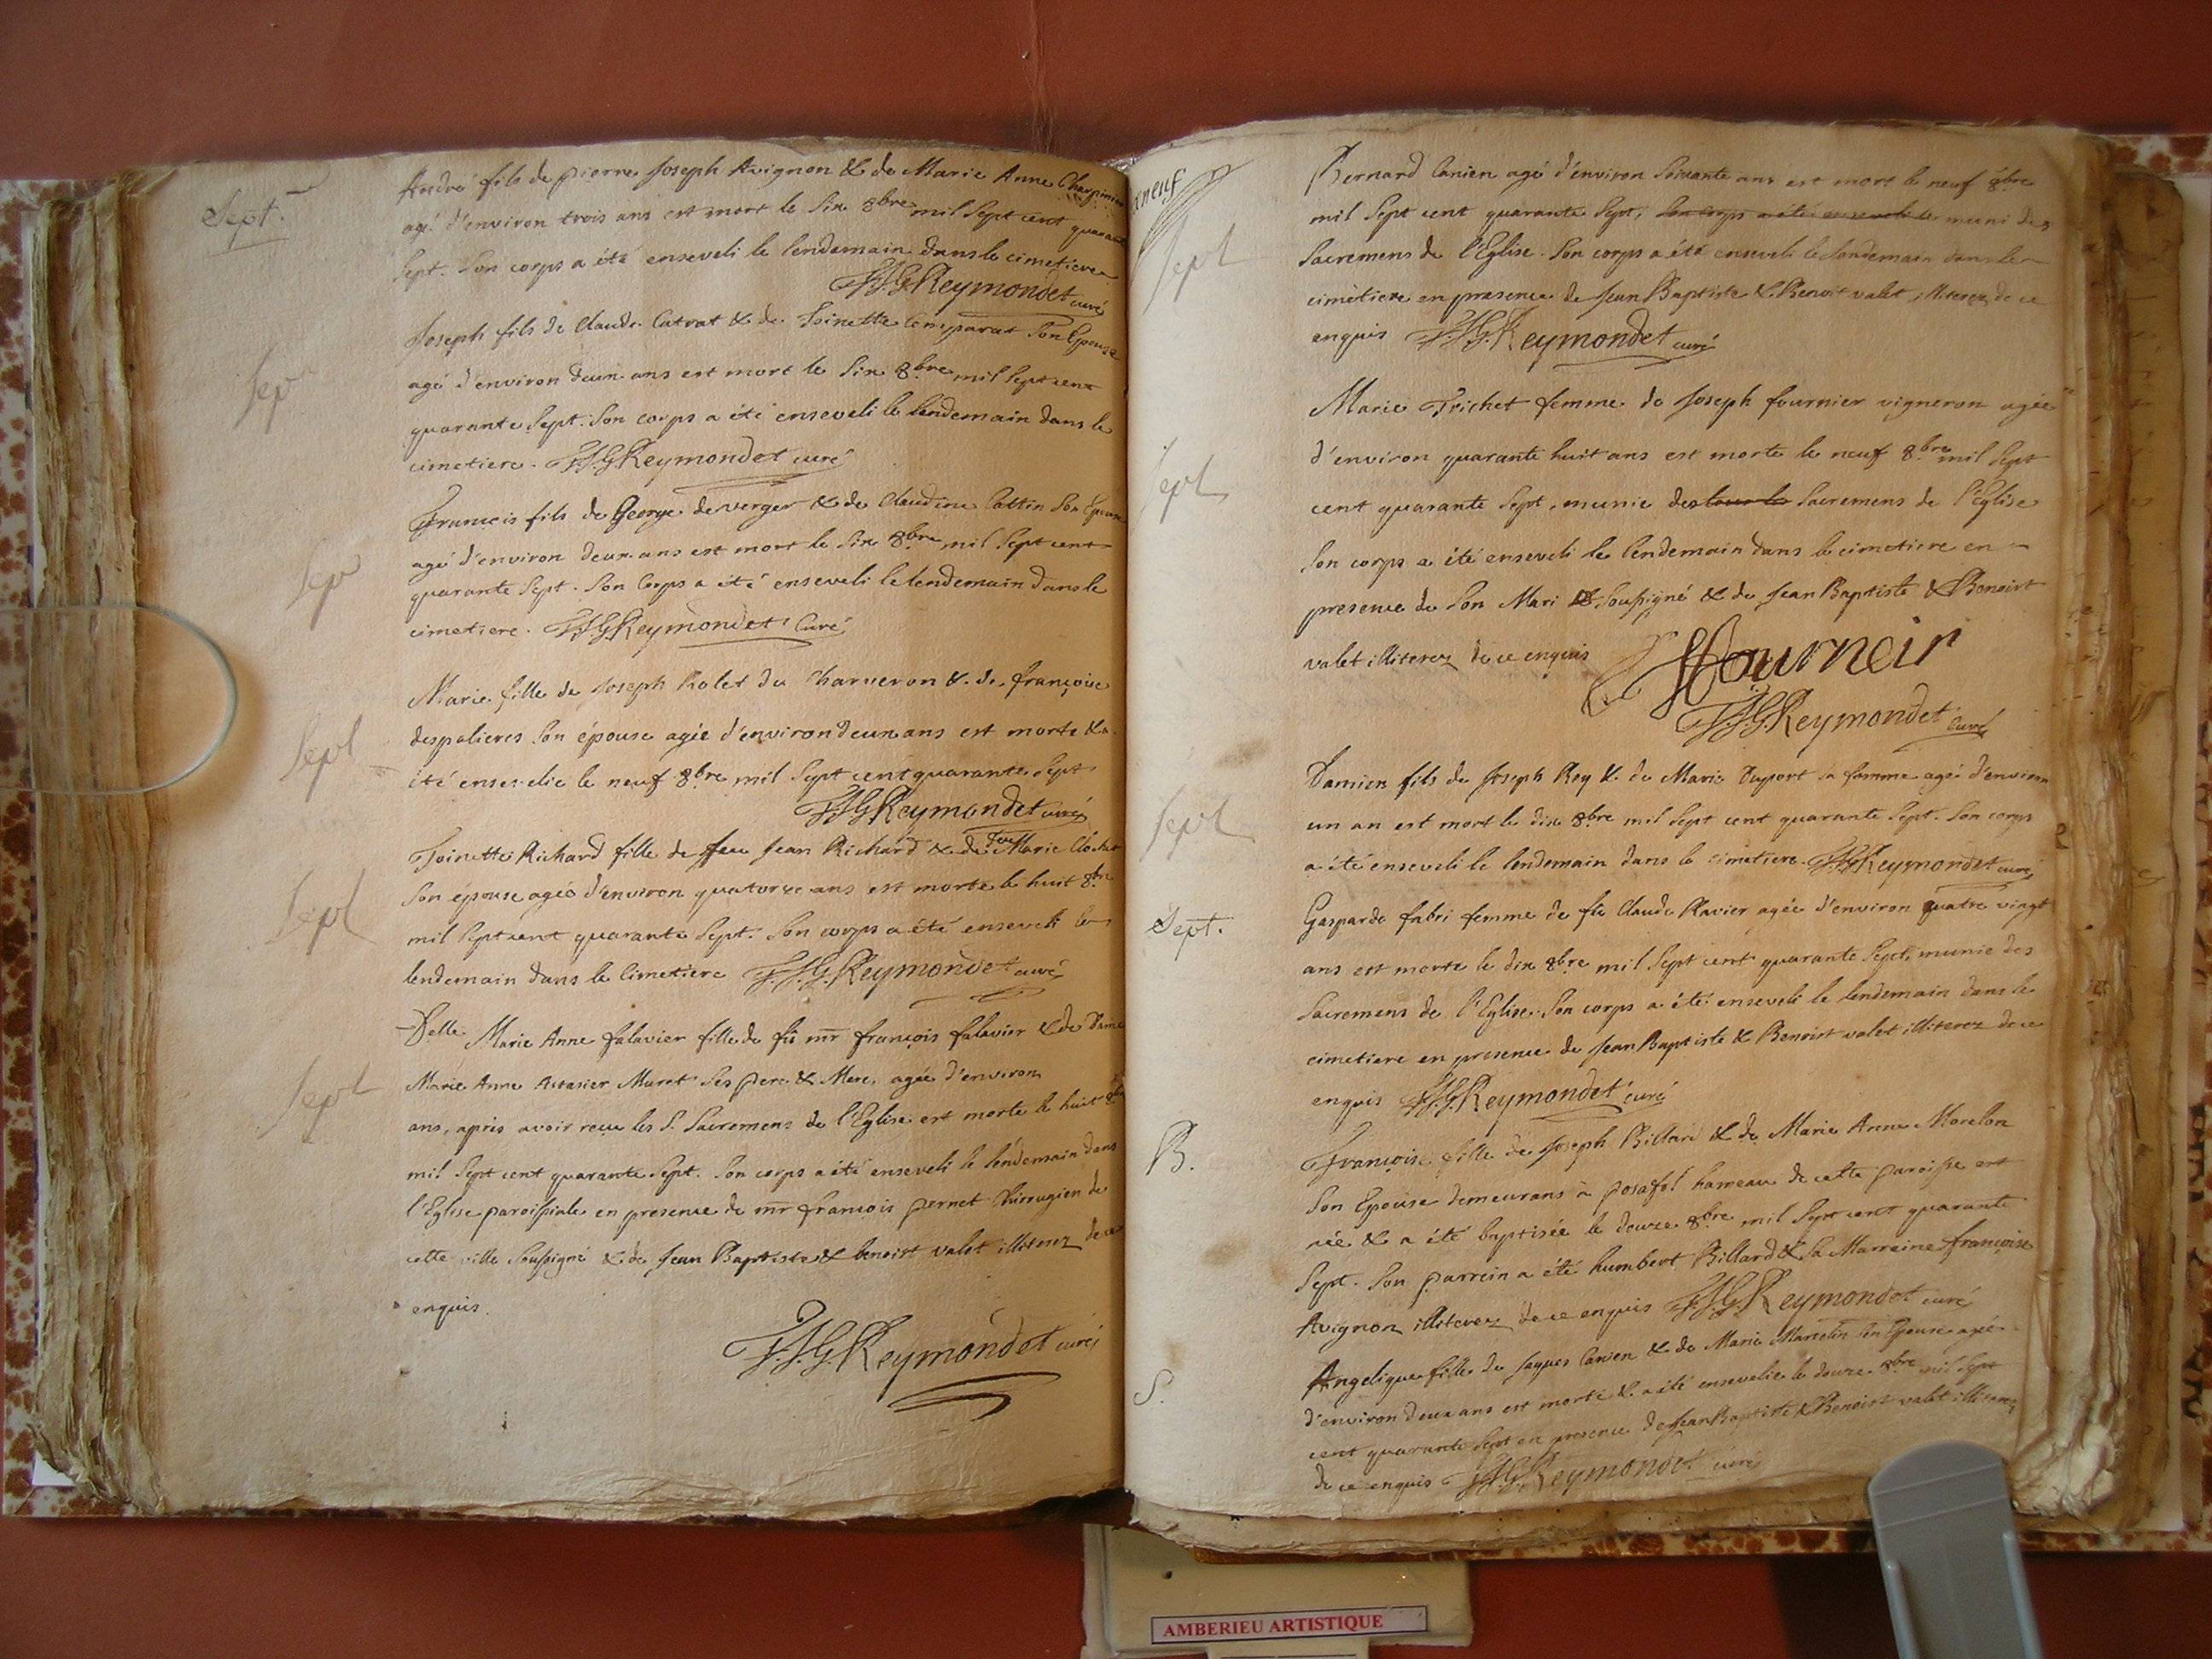 Sept.
André fils de pierre Joseph Avignon & de Marie Anne
agé d'environ trois ans est mort le six 8bre mil sept cent quarante
sept. Son corps a été enseveli le lendemain dans le cimetiere
F.J.G. Reymondet curé
Joseph fils de Claude Cutrat & de Toinette Comparat son Epouse
agé d'environ deux ans est mort le six 8bre mil sept cent
quarante sept. Son corps a été enseveli le lendemain dans le
cimetiere. F.J.G. Reymondet curé
Sep
François fils de George deverger & de Claudine Cottin son Epouse
agé d'environ deux ans est mort le six 8bre mil sept cent
quarante sept. Son Corps a été enseveli le lendemain dans le
cimetiere. F.J.G. Reymondet Curé
Sept
Marie fille de Joseph Rolet du Charveron & de françoise
despalieres son épouse agée d'environ deux ans est morte & a
été ensevelie le neuf 8bre mil sept cent quarante sept
F.J.G. Reymondet curé
Sept
Toinette Richard fille de feu Jean Richard & de feu Marie
son épouse agée d'environ quatorze ans est morte le huit 8bre
mil sept cent quarante sept. Son corps a été enseveli le
lendemain dans le Cimetiere F.J.G. Reymondet curé
Sept
Delle Marie Anne falavier fille de fû mr françois falavier & de Dame
Marie Anne Muret ses pere & Mere, agée d'environ
ans, après avoir reçu les S. Sacremens de l'Eglise est morte le huit 8bre
mil sept cent quarante sept. Son corps a été enseveli le lendemain dans
l'Eglise paroissiale en presence de mr françois pernet Chirugien de
cette ville soussigné & de Jean Baptiste & benoist valet illiterez de ce
enquis.
F.J.G. Reymondet curé
xneuf
Sept
Bernard Canien agé d'environ soixante ans est mort le neuf 8bre
mil sept cent quarante sept, son corps a été enseveli le muni des
Sacremens de l'Eglise. Son corps a été enseveli le lendemain dans le
cimetiere en presence de Jean Baptiste & Benoit valet illiterez de ce
enquis F.J.G. Reymondet curé
Sept
Marie Trichet femme de Joseph fournier vigneron agée
d'environ quarante huit ans est morte le neuf 8bre mil sept
cent quarante sept, munie des tous les Sacremens de l'Eglise
son corps a été enseveli le lendemain dans le cimetiere en
presence de son Mari soussigné & de Jean Baptiste & Benoist
valet illiterez de ce enquis
F.J.G. Reymondet Curé
Sept
Damien fils de Joseph Rey & de Marie Duport sa femme agé d'environ
un an est mort le dix 8bre mil sept cent quarante sept. Son corps
a été enseveli le lendemain dans le cimetiere. F.J.G. Reymondet curé
Sept.
Gasparde fabri femme de fû Claude Ravier agée d'environ quatre vingt
ans est morte le dix 8bre mil sept cent quarante sept, munie des
Sacremens de l'Eglise. Son corps a été enseveli le lendemain dans le
cimetiere en presence de Jean Baptiste & Benoist valet illiterez de ce
enquis F.J.G. Reymondet curé
B.
Françoise fille de Joseph Billard & de Marie Anne Morelon
son Epouse demeurans à posafol hameau de cette paroisse est
née & a été baptisée le douze 8bre mil sept cent quarante
sept. Son parrein a été humbert Billard & sa Marreine françoise
Avignon illiterez de ce enquis F.J.G. Reymondet curé
S.
Angelique fille de Jaques Canien & de Marie Marcelin son Epouse agée
d'environ deux ans est morte & a été ensevelie le douze 8bre mil sept
cent quarante sept en presence de Jean Baptiste & Benoist valet illiterez
de ce enquis F.J.G. Reymondet curé
AMBERIEU ARTISTIQUE